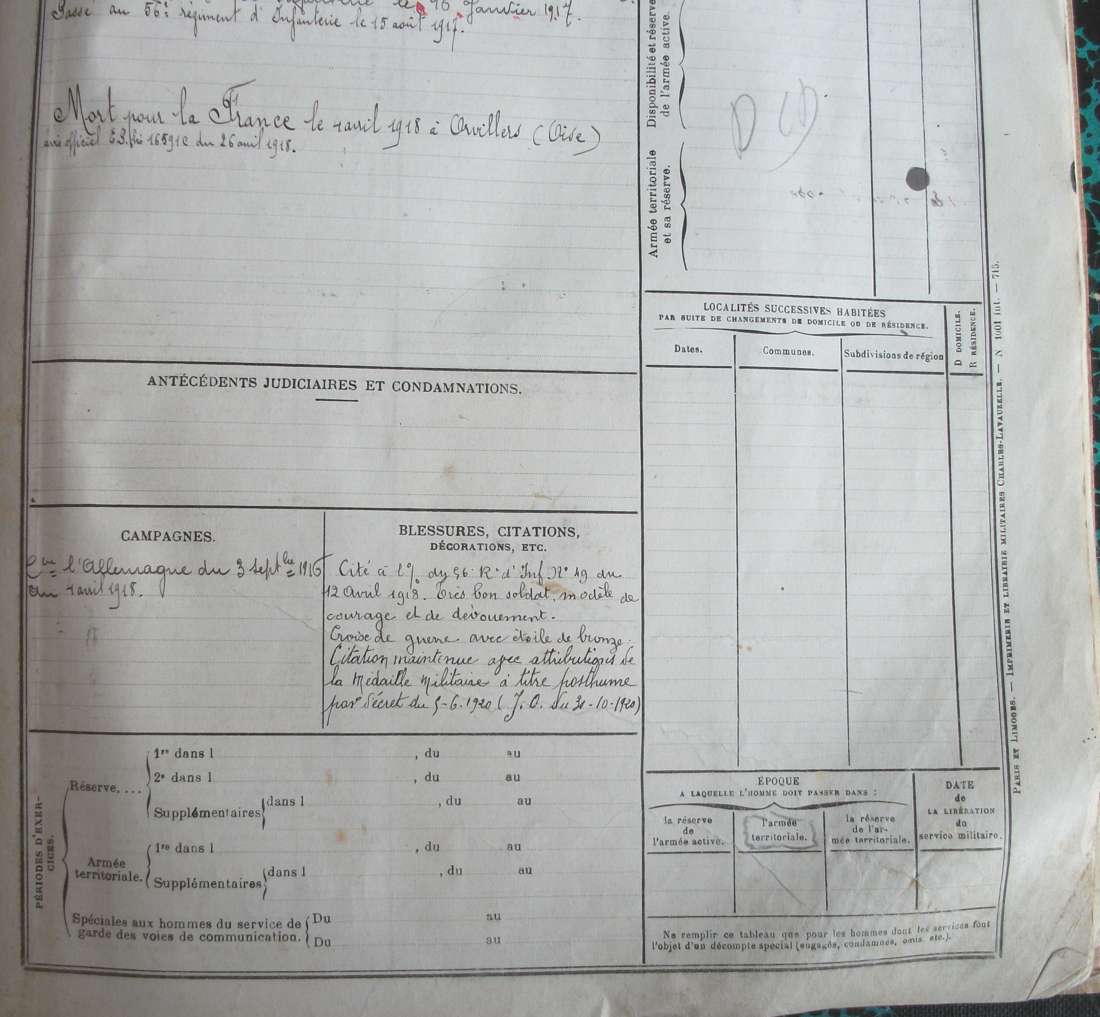 le 16 Janvier 1917.
Passé au 56e régiment d'Infanterie le 15 août 1917.
Mort pour la France le 1 avril 1918 à Orvillers (Oise)
avis officiel du 26 avril 1918.
ANTÉCÉDENTS JUDICIAIRES ET CONDAMNATIONS.
CAMPAGNES.
l'Allemagne du 3 Septbre 1916
au 1 avril 1918.
BLESSURES, CITATIONS,
DÉCORATIONS, ETC.
Cité à l'o/ du 56 R. d'Inf. N° 49 du
12 Avril 1918. Très bon soldat, modèle de
courage et de dévouement.
Croix de guerre avec étoile de bronze.
Citation maintenue avec attribution de
la Médaille Militaire à titre posthume
par décret du 5-6.1920 (J.O. du 30-10-1920)
PÉRIODES D'EXER-
CICES.
Réserve....
1re dans l , du au
2e dans l , du au
Supplémentaires dans l , du au
Armée
territoriale.
1re dans l , du au
Supplémentaires dans l , du au
Spéciales aux hommes du service de
garde des voies de communication.
Du au
Du au
Disponibilité et réserve
de l'armée active.
Armée territoriale
et sa réserve.
D C D
LOCALITÉS SUCCESSIVES HABITÉES
PAR SUITE DE CHANGEMENTS DE DOMICILE OU DE RÉSIDENCE.
Dates.
Communes.
Subdivisions de région
D DOMICILE.
R RÉSIDENCE.
ÉPOQUE
A LAQUELLE L'HOMME DOIT PASSER DANS :
la réserve
de
l'armée active.
l'armée
territoriale.
la réserve
de l'ar-
mée territoriale.
DATE
de
LA LIBÉRATION
du
service militaire.
Ne remplir ce tableau que pour les hommes dont les services font
l'objet d'un décompte spécial (engagés, condamnés, omis, etc.).
PARIS ET LIMOGES. — IMPRIMERIE ET LIBRAIRIE MILITAIRES CHARLES-LAVAUZELLE. — N 1001 int. — 715.